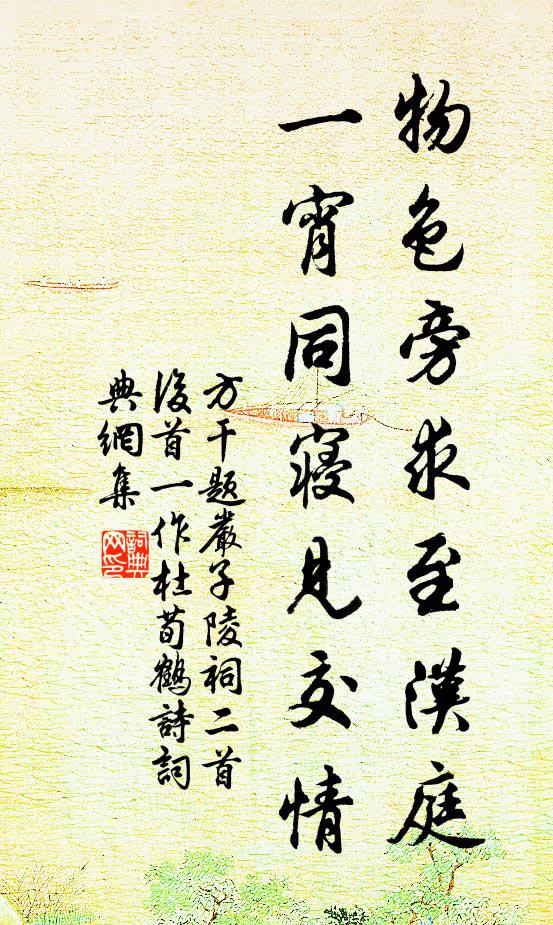 物色旁求至漢庭
一宵同寢見交情
方干題嚴子陵祠二首
後首一作杜荀鶴詩詞
典網集
詞典网印